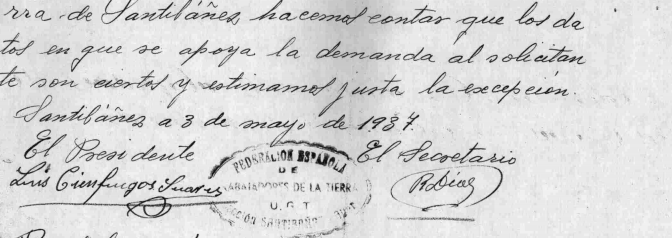 rra de Santibáñez, hacemos contar que los da
tos en que se apoya la demanda al solicitan
te son ciertos y estimamos justa la excepción.
Santibáñez a 3 de mayo de 1937.
El Presidente
El Secretario
Luis Cienfuegos Suarez
R. Díaz
FEDERACION ESPAÑOLA
DE
TRABAJADORES DE LA TIERRA
U.G.T